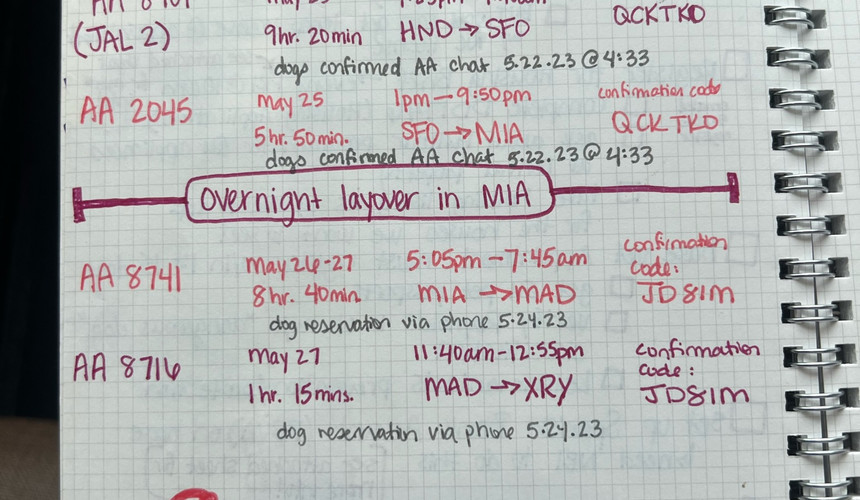 (JAL 2) 9hr. 20min HND → SFO QCKTKD
dogs confirmed AA chat 5.22.23 @ 4:33
AA 2045 may 25 1pm – 9:50pm confirmation code
5hr. 50min. SFO → MIA QCKTKD
dogs confirmed AA chat 5.22.23 @ 4:33
Overnight layover in MIA
AA 8741 may 26-27 5:05pm – 7:45am confirmation code:
8hr. 40min. MIA → MAD JD81M
dog reservation via phone 5.24.23
AA 8716 may 27 11:40am-12:55pm confirmation code:
1hr. 15mins. MAD → XRY JD81M
dog reservatin via phone 5.24.23